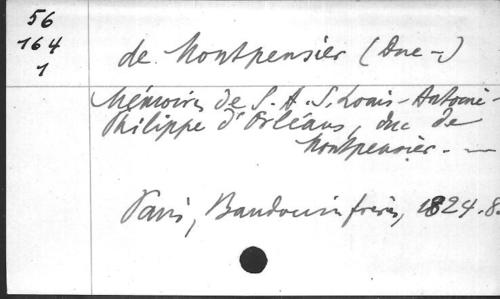 56
164
1
de Montpensier (Duc –)
Mémoires de S. A. S. Louis-Antoine-
Philippe d'Orléans, duc de
Montpensier. —
Paris, Baudouin frères, 1824. 8.